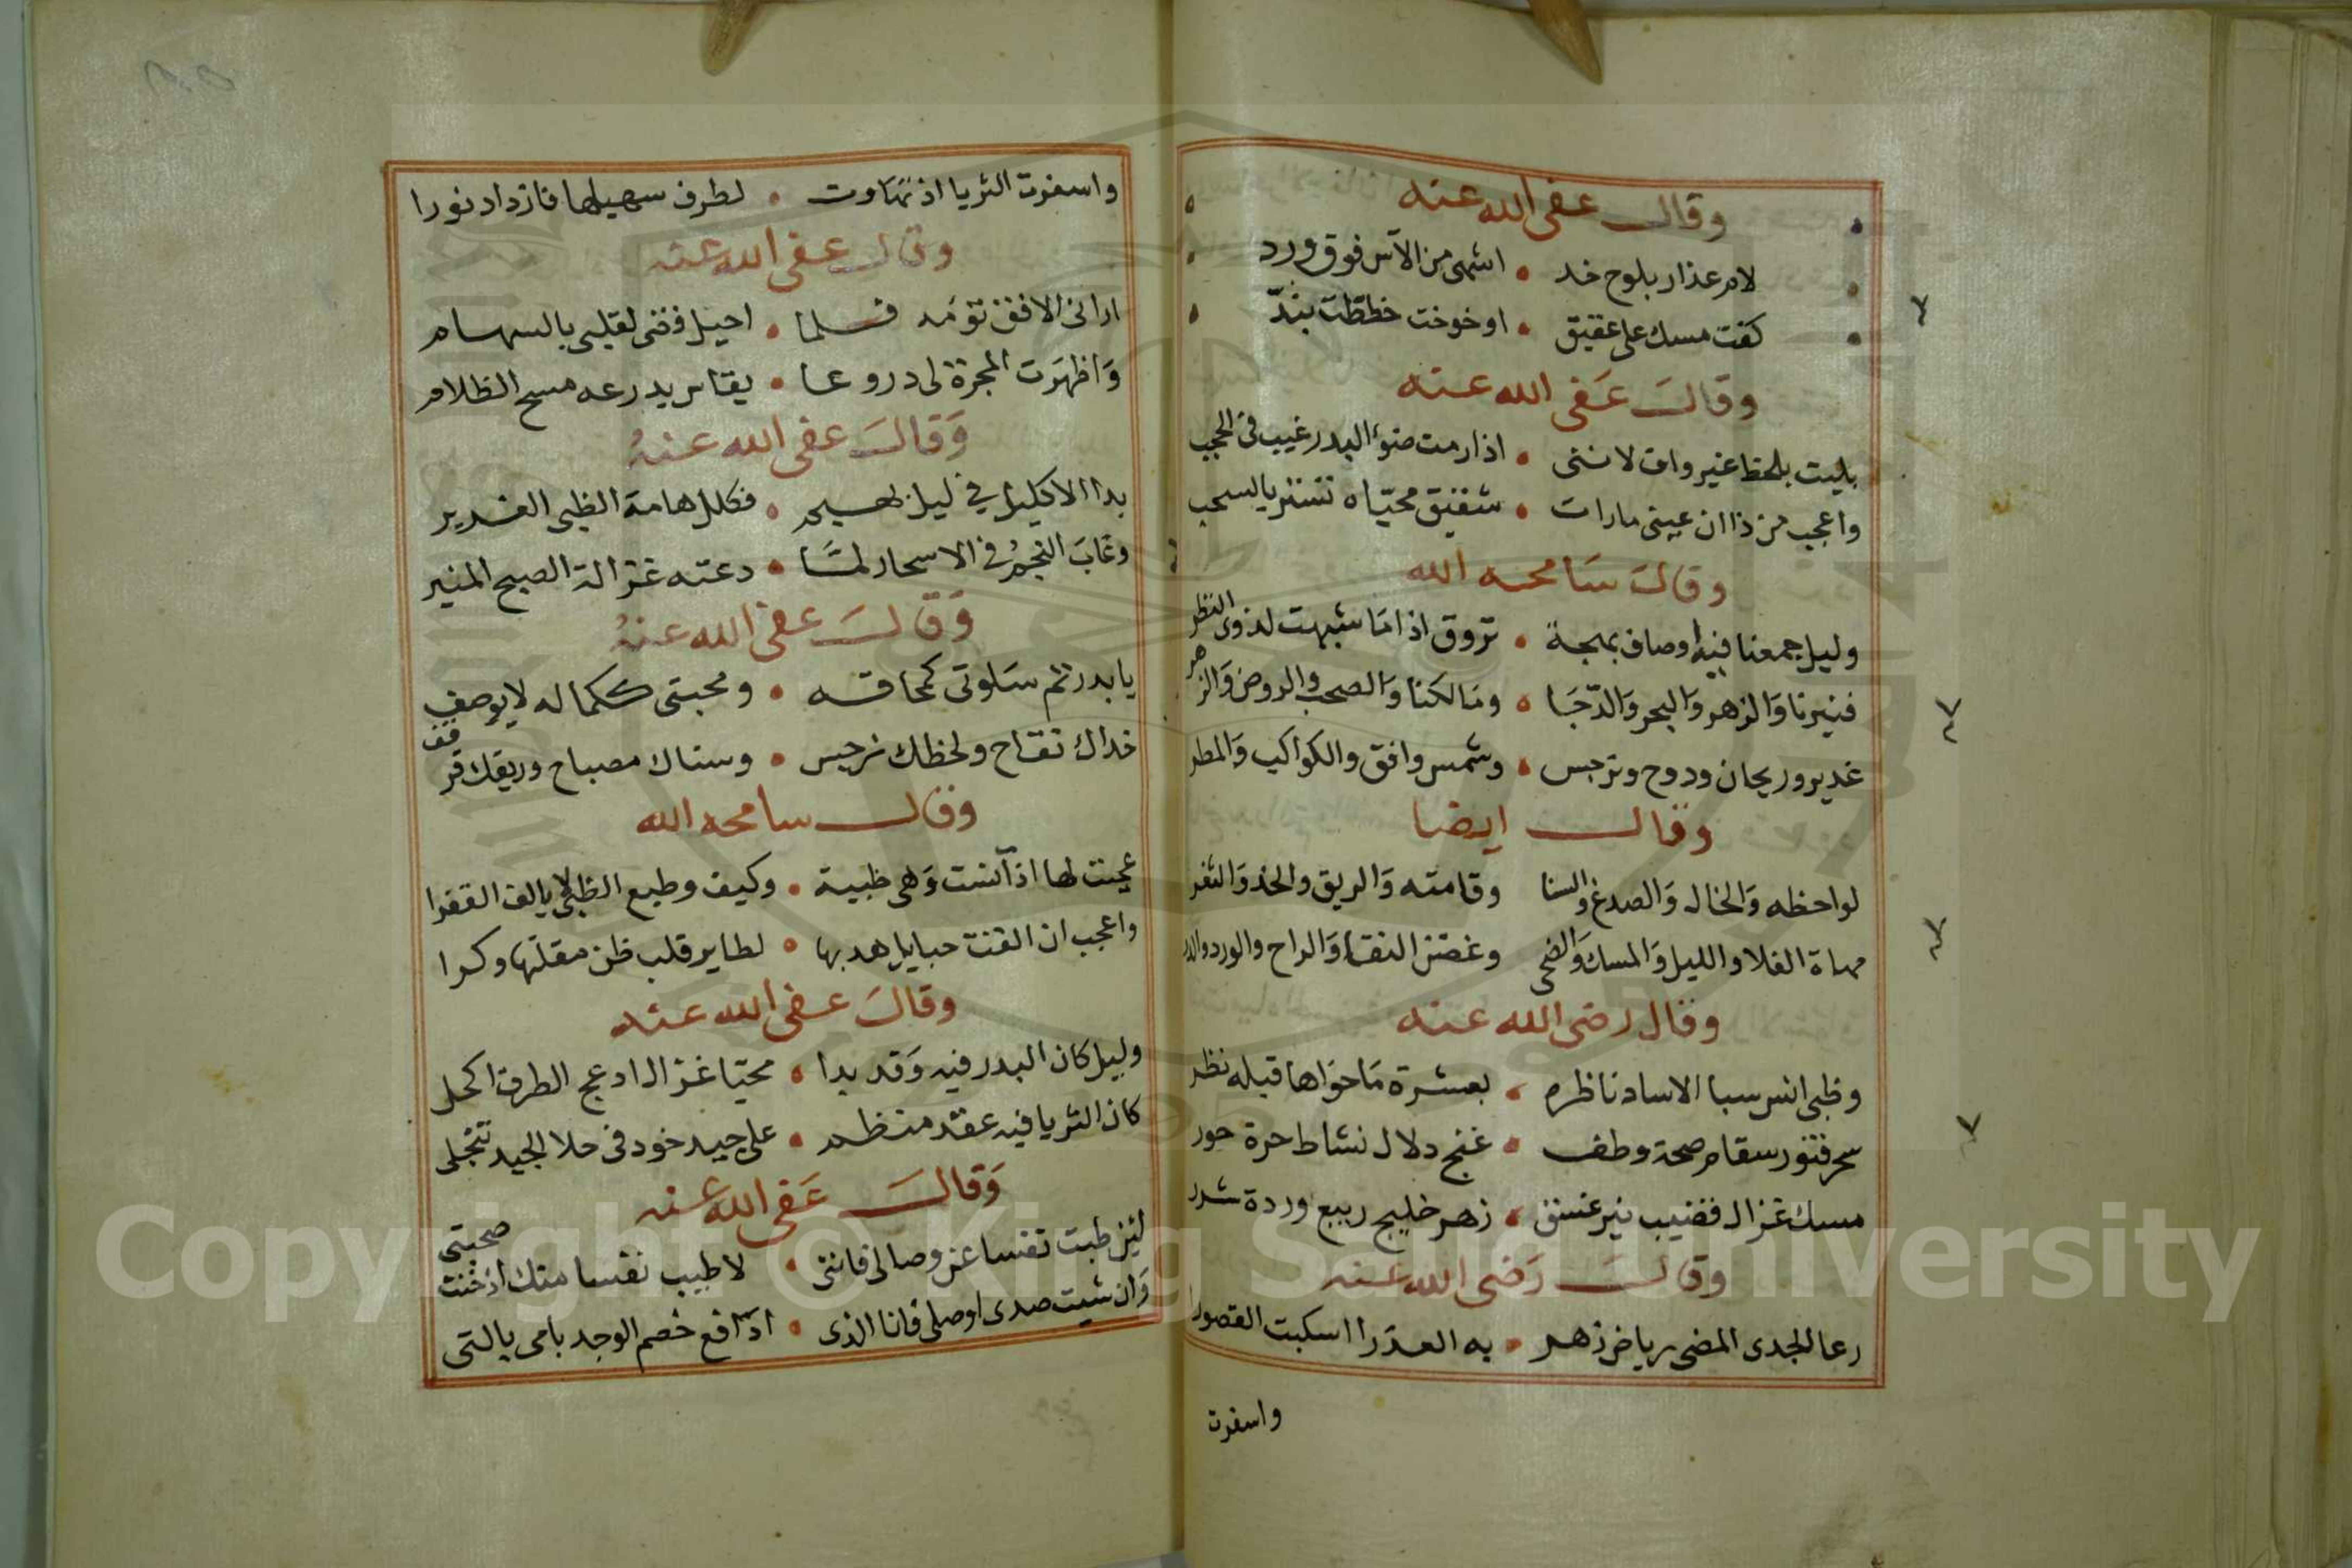 وقال عفى الله عنه
لام عذار بلوح خد • اشهى من الآس فوق ورد
كفت مسك على عقيق • او خوخت خططت بندّ
وقالَ عَفى الله عنه
بليت بلحظ غير واف لاننى • اذا رمت ضوء البدر غيب فى الحجب
واعجب من ذا ان عينى ما رات • شقيق محيّاه تستر بالسحب
وقالَ سَامحه الله
وليل جمعنا فيه اوصاف بهجة • تروق اذا مَا شبهت لذوى النظر
فنيرنا وَالزهر وَالبحر وَالدّجَا • ومَالكنا وَالصحب والروض وَالزهر
غدير وريحان ودوح ونرجس • وشمس وافق والكواكب وَالمطر
وقال ايضا
لواحظه وَالخال وَالصدغ والسنا وقامته وَالريق والخد وَالثغر
مهاة الفلا والليل وَالمسك وَالضحى وغصن النقا وَالراح والورد والدر
وقال رضى الله عنه
وظبى انس سبا الاساد ناظره • بعشرة مَا حوَاها قبله نظر
سحر فتور سقام صحة وطف • غنج دلال نشاط حرة حور
مسك غزال قضيب نير غسق • زهر خليج ربيع وردة شرر
وقالَ رَضى الله عنه
رعا الجدى المضى رياض زهر • به العذرا اسكبت القصورا
واسفرت
واسفرت الثريا اذ تهاوت • لطرف سهيلها فازداد نورا
وقال عفى الله عنه
ارانى الافق تومَه فلما • احيل فتنى لقلبى بالسهام
وَاظهرَت المجرة لى دروعا • يدرعه مسح الظلام
وَقالَ عفى الله عنهُ
بدا الاكليل في ليل بهيم • فكلل هامة الظبى الغدير
وغابَ النجمُ فى الاسحار لمَّا • دعته غزالة الصبح المنير
وَقالَ عفى الله عنهُ
يا بدر تم سَلوتى كمحاقه • ومحبتى ككماله لا يوصف
خداك تفاح ولحظك نرجس • وسناك مصباح وريقك قرقف
وقال سامحه الله
عجبت لها اذ آنست وَهى ظبية • وكيف وطبع الظبى لا يالف القفرا
واعجب ان القت حبايل هدبها • لطاير قلب ظن مقلتها وكرا
وقالَ عفى الله عنه
وليل كان البدر فيه وَقد بدا • محيّا غزال ادعج الطرف اكحل
كان الثريا فيه عقد منظم • على جيد خود فى حلا الجيد تنجلى
وَقالَ عَفى الله عنه
لئن طبت نفسا عن وصالى فاننى • لاطيب نفسا منك اذ خنت صحبتى
وَان شيت صدى اوصلى فانا الذى • ادَافع خصم الوجد بامى بالتى